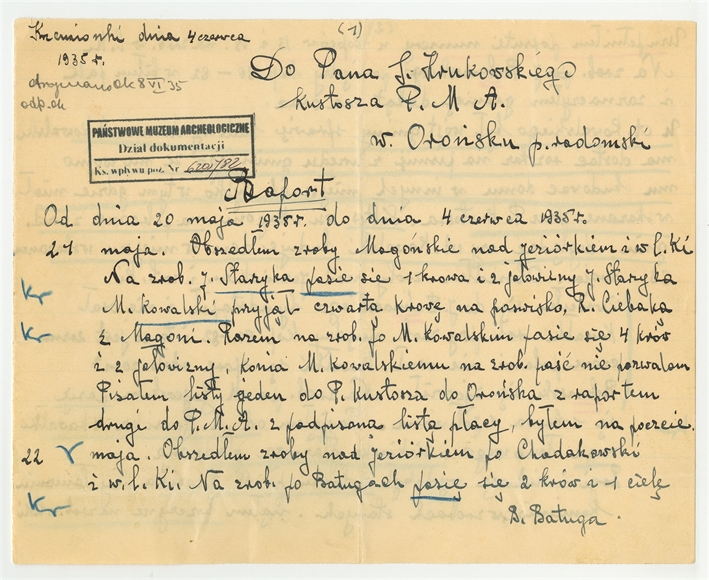 (1)
Krzemionki dnia 4 czerwca
1935 r.
otrzymano dk 8 VI 35
odp. dk
Do Pana J. Krukowskiego
Kustosza P. M A.
w. Orońsku p. radomski
PAŃSTWOWE MUZEUM ARCHEOLOGICZNE
Dział dokumentacji
Ks. wpływu poz. Nr
Raport
Od dnia 20 maja 1935 r. do dnia 4 czerwca 1935 r.
21 maja. Obszedłem zroby Magońskie nad Jeziórkiem i w l. Ki
Na zrob. J. Staryka pasie się 1 krowa i 2 jełowizny J. Staryka
Kr M. Kowalski przyjął czwartą krowę na paswisko, R. Ciebaka
Kr z Magoni. Rozem na zrob. po M. Kowalskim pasie się 4 krów
i 2 jełowizny. Konia M. Kowalskiemu na zrob. paść nie pozwalam
Pisałem listy jeden do P. Kustosza do Orońska z raportem
drugi do P. M. A. z podpisoną listą płacy, byłem na poczcie.
22 maja. Obszedłem zroby nad Jeziórkiem po Chodakowski
i w. l. Ki. Na zrob. po Batugach pasię się 2 krów i 1 cielę
Kr
B. Batuga.